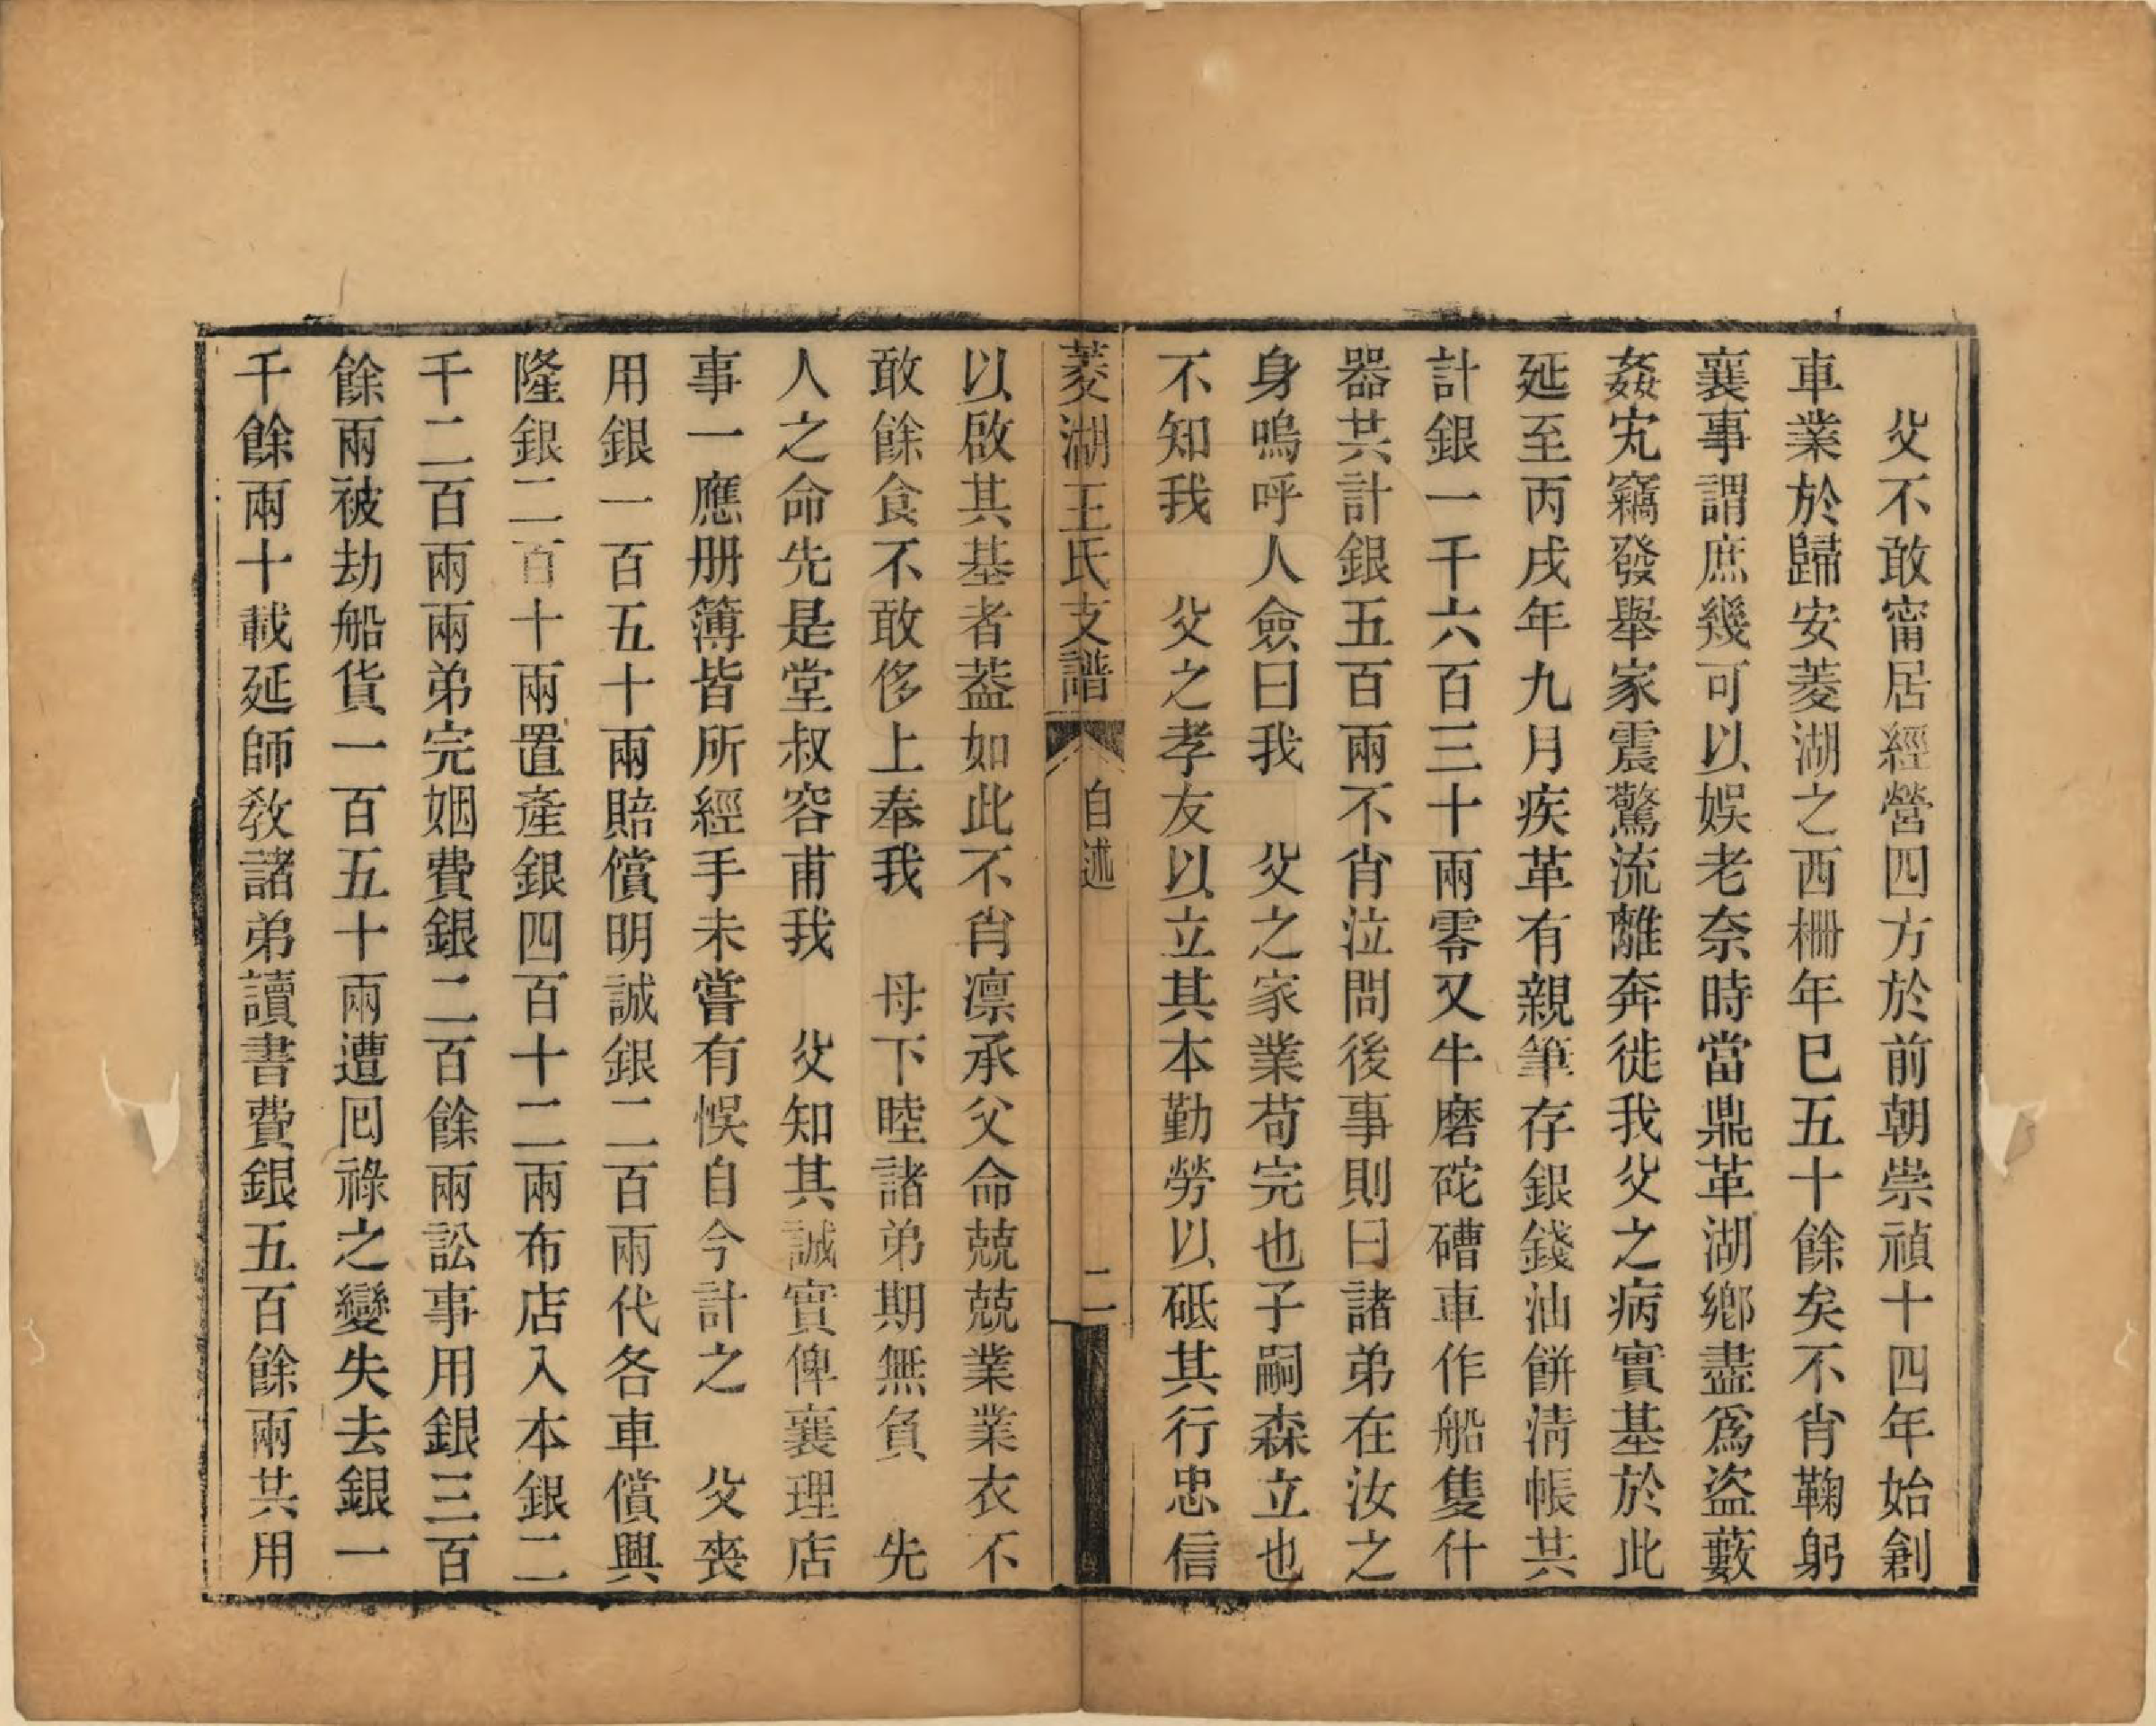 父不敢甯居經營四方於前朝崇禎十四年始創
車業於歸安菱湖之西柵年巳五十餘矣不肖鞠躬
襄事謂庶幾可以娛老奈時當鼎革湖鄉盡爲盜藪
姦宄竊發舉家震驚流離奔徙我父之病實基於此
延至丙戌年九月疾革有親筆存銀錢油餅淸帳共
計銀一千六百三十兩零又牛磨砣磳車作船隻什
器共計銀五百兩不肖泣問後事則曰諸弟在汝之
身嗚呼人僉曰我　父之家業苟完也子嗣森立也
不知我　父之孝友以立其本勤勞以砥其行忠信
菱湖王氏支譜　自述　二
以啟其基者葢如此不肖凛承父命兢兢業業衣不
敢餘食不敢侈上奉我　母下睦諸弟期無負　先
人之命先是堂叔容甫我　父知其誠實俾襄理店
事一應册簿皆所經手未嘗有悞自今計之　父喪
用銀一百五十兩賠償明誠銀二百兩代各車償興
隆銀二百十兩置產銀四百十二兩布店入本銀二
千二百兩兩弟完姻費銀二百餘兩訟事用銀三百
餘兩被劫船貨一百五十兩遭囘祿之變失去銀一
千餘兩十載延師敎諸弟讀書費銀五百餘兩共用